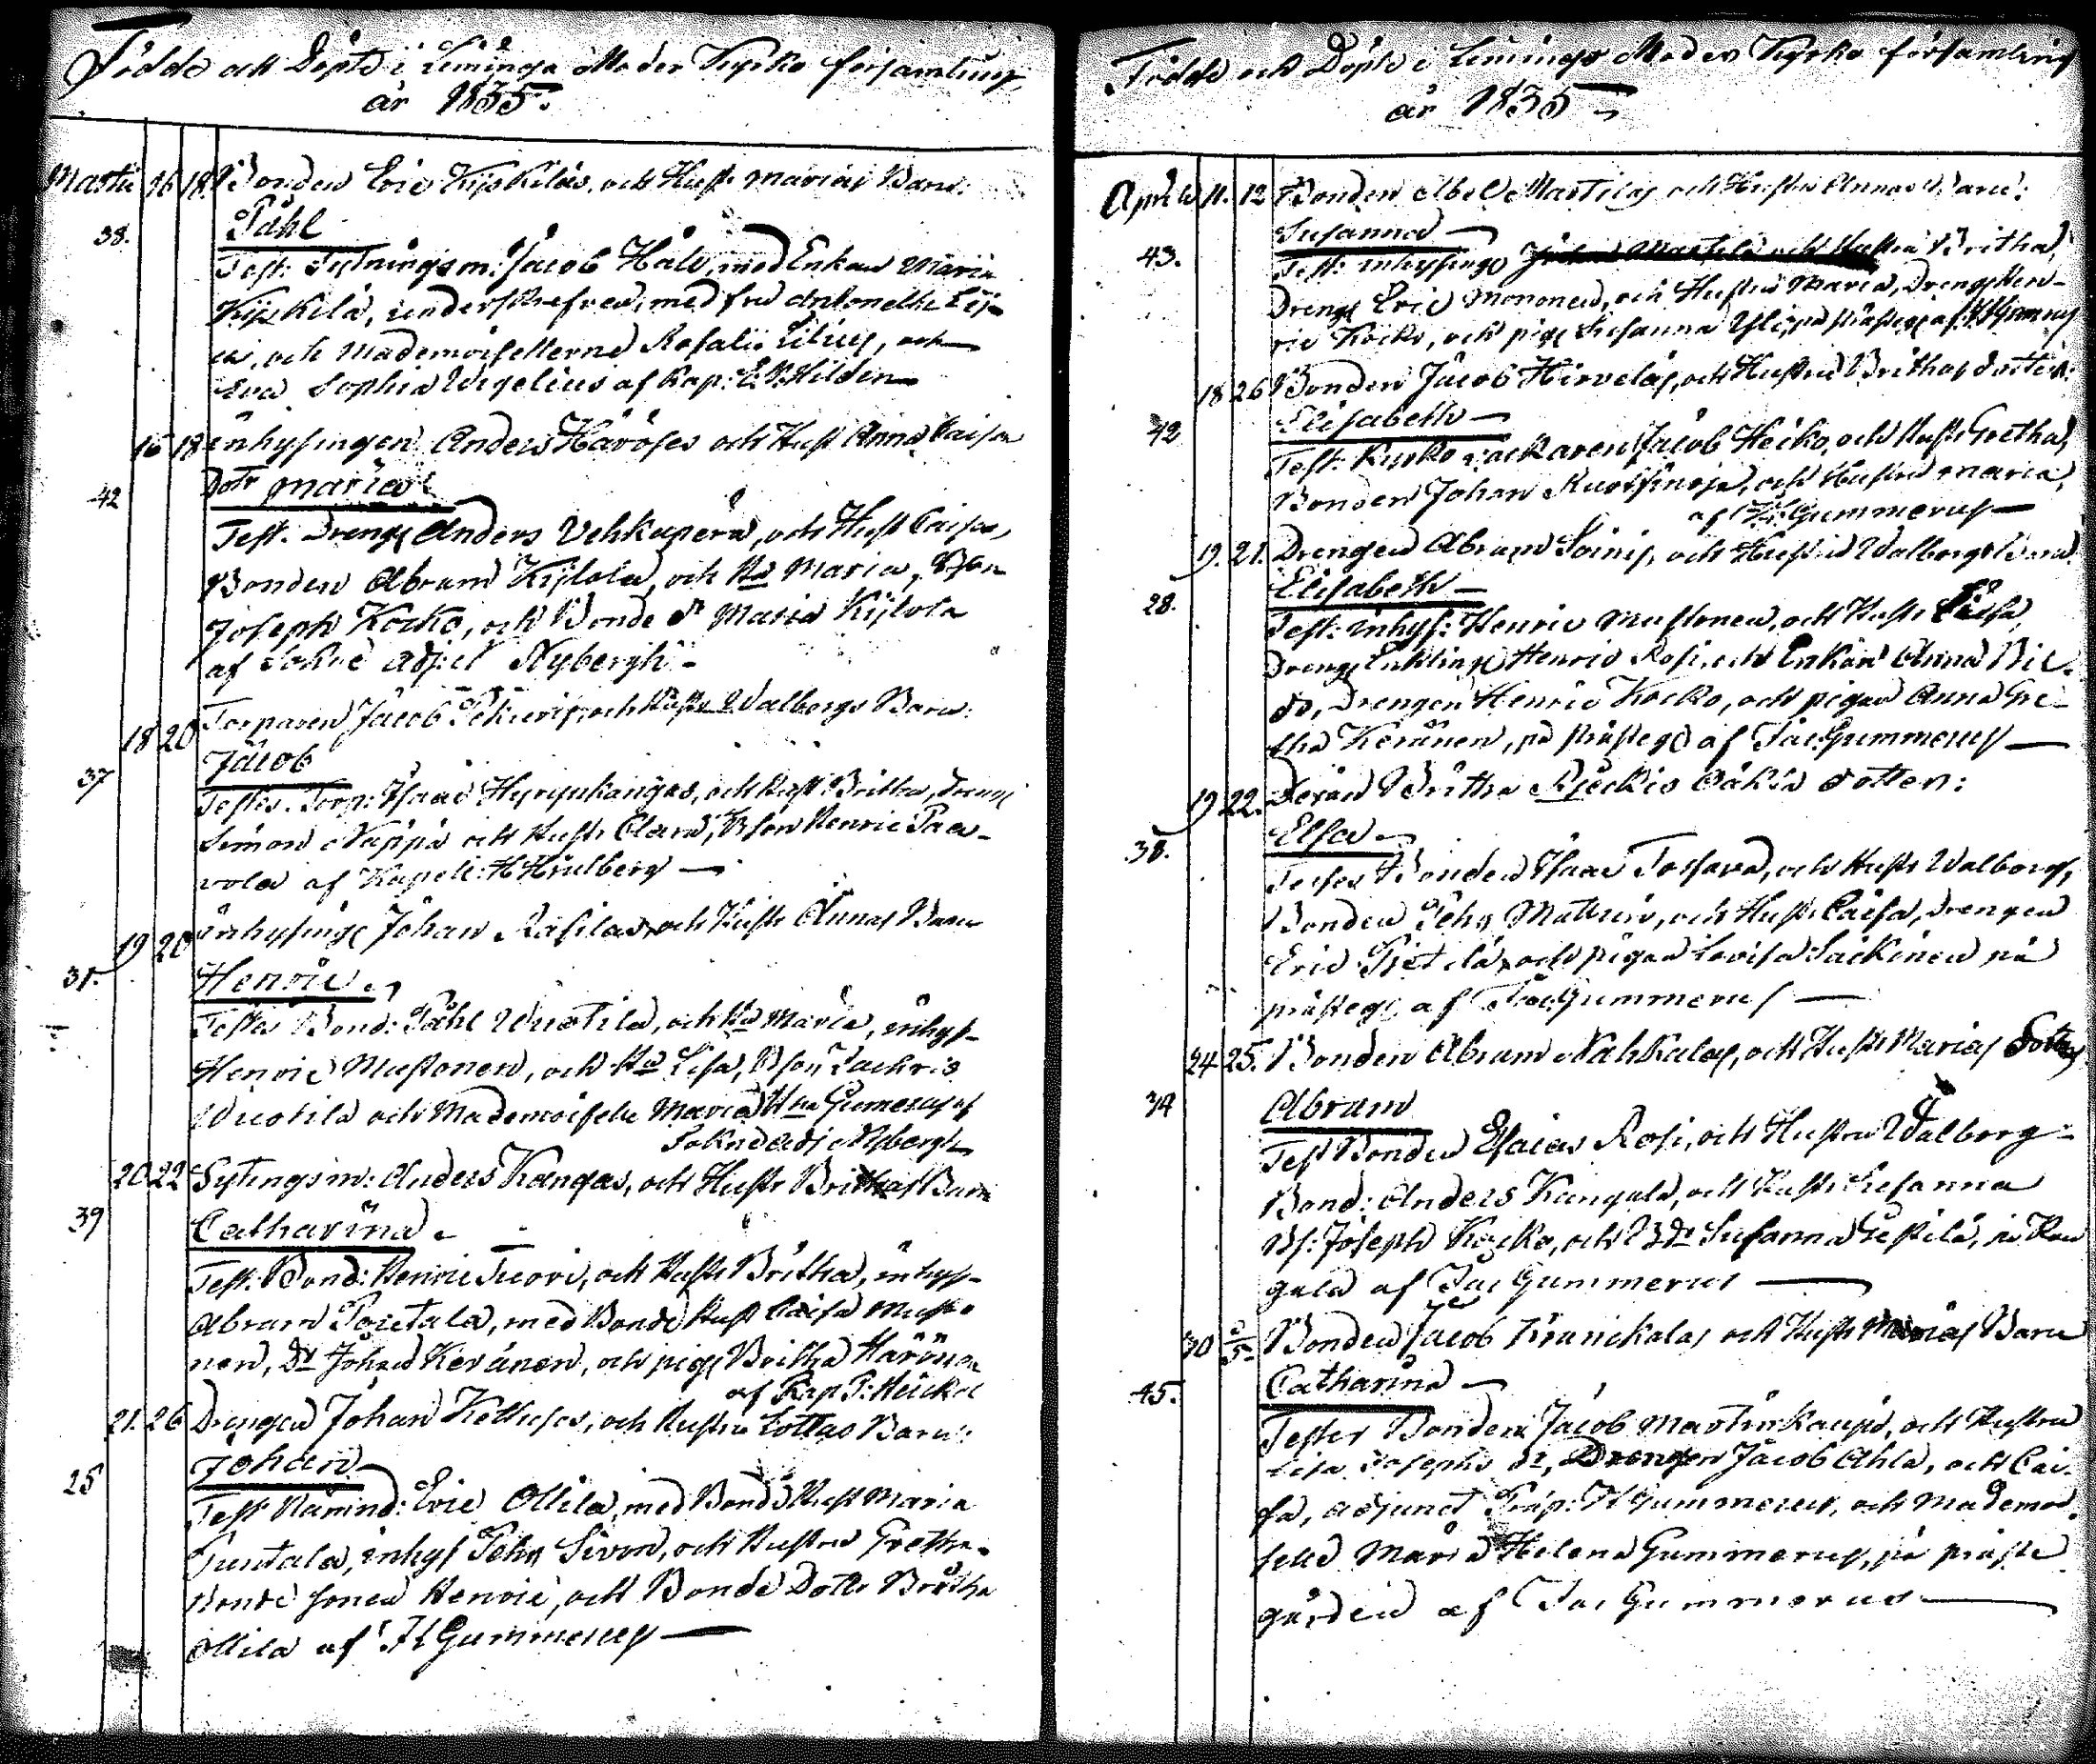 Födde och Döpte i Limingo Moder Kyrko församling
år 1835.
Martii 16 18. Bonden Eric Kijskiläs, och Hust: Marias Barn:
38. Påhl
Test: Sytningsm: Jacob Halo, med Enkan Maria
Kijskilä, underskrefven, med fru Antonette
och Mademoisellerne Rosalie Lilius, och
Eva Sophia Wegelius af Kap: Hilden
16 18 inhysingen Anders Haröses och Hust Anna Caisas
42 Dotr Maria
Test. Dreng Anders Vehkaperä, och Hust Caisa,
Bonden Abram Kijlola, och Hu Maria, Bson
Joseph Kocko, och Bonde dr Maria Kijlola
af Sokne adj: Nybergh
18 20 Torparen Jacob och Hustr Walborgs Barn:
37 Jacob
Testes. Torp: Isaac Hyrynkangas, och Hust Britha, dreng
Simon Nappa och Hustr Clara, Bson Henric Paa-
vola af Kapell: H Hrulberg
19 20 inhysing Johan Rasilas, och Hustr Annas Barn
31. Henric
Testes Bond: Påhl Wuotila, och Hu Maria, inhys-
Henric Mustonen, och Hu Lisa, Bson Zachris
Wuotila och Mademoiselle Maria Hna Gumerus af
Sokne adj Nybergh
20 22 Sytingsm: Anders Kangas, och Hustr Brithas Barn
39 Catharina
Test: Bond: Henric Tuori, och Hustr Britha, inhys-
Abram Poietala, med Bond Hust Caisa Musto
nen, Dr Johan Keränen, och pig Britha Härönen
af Kap P: Heickel
21. 26 Drengen Johan Kethuses, och Hustru Lottas Barn:
25 Johan
Test Nämnd: Eric Ollila, med Bonde Hust Maria
Tuntala, inhys Pehr Siven, och Hustru Gretha.
Bonde sonen Henric, och Bonde Dottr Britha
Ollila af H Gummerus
Födde och Döpte i Limingo Moder Kyrko församling
år 1835
Aprill 11. 12 Bonden Abel Martilas och Hustru Annas Barn:
43. Susanna
Test: inhysing Johan Martila och Hustru Britha,
Dreng Eric Mononen, och Hustru Maria, Dreng Hen-
ric Kocko, och pig Susanna Yli på prästeg af Gummerus
18 26 Bonden Jacob Hirveläs, och Hustru Brithas dotter:
42 Elisabeth
Test: Kyrko wacktaren Jacob Heiko, och Hustr Gretha,
Bonden Johan Kuorsinoja, och Hustru Maria,
af H: Gummerus
19. 21. Drengen Abram Soinis, och Hustru Walborgs Barn.
28. Elisabeth
Test: inhys: Henric Mustonen, och Hustr Lisa,
Dreng Enkling Henric Rosi, och Enkan Anna
Drengen Henric Kocko, och pigan Anna Gre-
tha Keränen, på prästeg af Jac: Gummerus
19 22. Britha oäkta dotter:
38. Elsa
Testes Bonden Isaac Tossava, och Hustr Walborg,
Bonden Pehr Mattinen, och Hustr Caisa, drengen
Eric Pietilä, och pigan Lovisa Säckinen på
prästeg af Jac: Gummerus
24 25. Bonden Abram Nahkalas, och Hustr Marias
34 Abram
Test Bonden Esaias Rosi, och Hustru Walborg
Bond: Anders Kangala, och Hustr Susanna
Bs: Joseph Kocko, och Bdr Susanna på Kan
gala af Jac Gummerus
30 Bonden Jacob Krunckalas och Hustr Marias Barn
45. Catharina
Testes Bonden Jacob Martinkaupi, och Hustru
Lisa Josephs dr, Drengen Jacob Ahla, och Cai-
sa, adjunct Kap: H Gummerus, och Mademoi
selle Maria Helena Gummerus, på präste
gården af Jac Gummerus